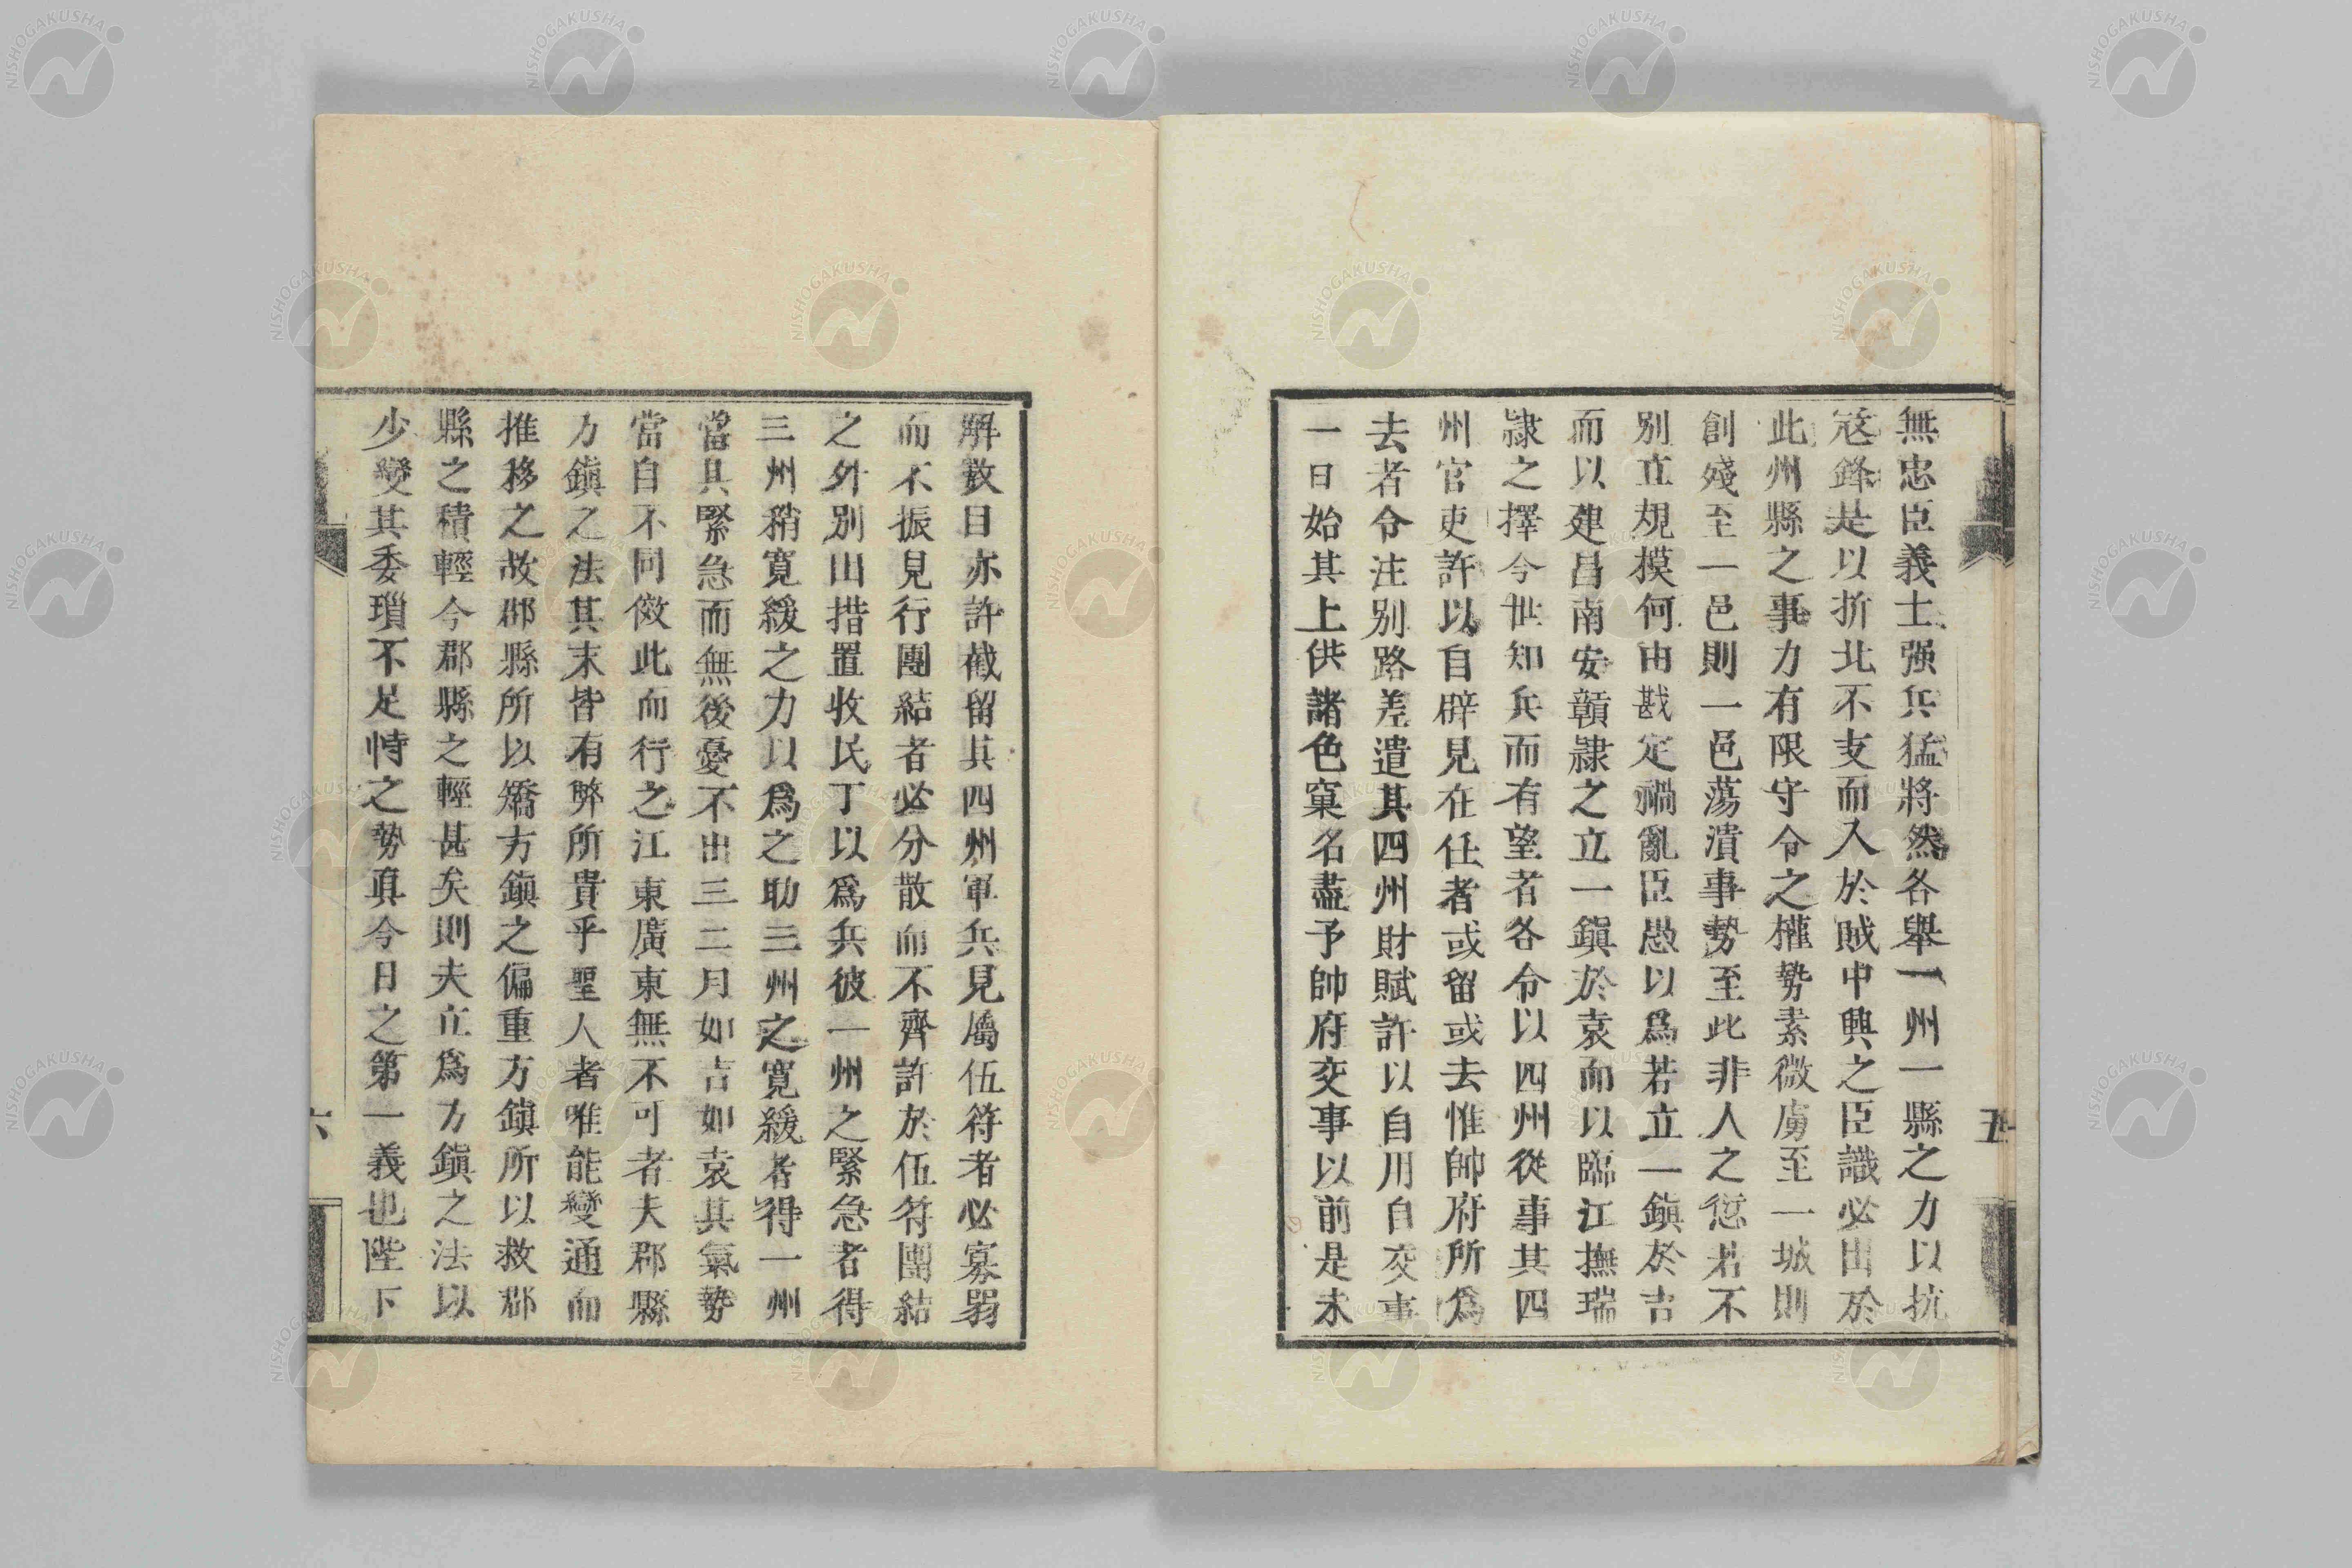 無忠臣義士强兵猛將然各舉一州一縣之力以抗
寇鋒是以折北不支而入於賊中興之臣識必出於
此州縣之事力有限守令之權勢素微虜至一城則
創殘至一邑則一邑蕩潰事勢至此非人之愆若不
別立規模何由戡定禍亂臣愚以爲若立一鎭於吉
而以建昌南安贛隷之立一鎭於袁而以臨江撫瑞
隷之擇今世知兵而有望者各令以四州從事其四
州官吏許以自辟見在任者或留或去惟帥府所爲
去者令注別路差遣其四州財賦許以自用自交事
一日始其上供諸色窠名盡予帥府交事以前是未
五
解數目亦許截留其四州軍兵見屬伍符者必寡弱
而不振見行團結者必分散而不齊許於伍符團結
之外別出措置收民丁以爲兵彼一州之緊急者得
三州稍寬緩之力以爲之助三州之寬緩者得一州
當其緊急而無後憂不出三二月如吉如袁其氣勢
當自不同倣此而行之江東廣東無不可者夫郡縣
方鎭之法其末皆有弊所貴乎聖人者唯能變通而
推移之故郡縣所以矯方鎭之偏重方鎭所以救郡
縣之積輕今郡縣之輕甚矣則夫立爲方鎭之法以
少變其委瑣不足恃之勢眞今日之第一義也陛下
六
NISHOGAKUSHA